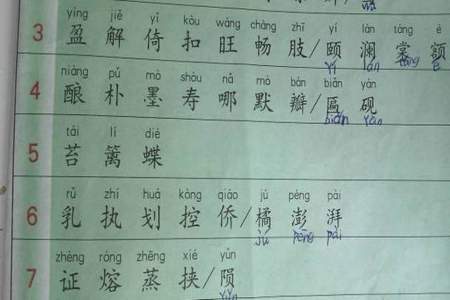 yíng jiě yǐ kòu wàng chàng zhī yí lán táng é
3 盈 解 倚 扣 旺 畅 肢 / 颐 澜 棠 额
yí lán táng é
niàng pǔ mò shòu nǎ mò bàn biǎn yàn
4 酿 朴 墨 寿 哪 默 瓣 / 匾 砚
biǎn yàn
tái lí dié
5 苔 篱 蝶
rǔ zhí huá kòng qiáo jú péng pài
6 乳 执 划 控 侨 / 橘 澎 湃
jú péng pài
zhèng róng zhēng xié yǔn
7 证 熔 蒸 挟 / 陨
yǔn